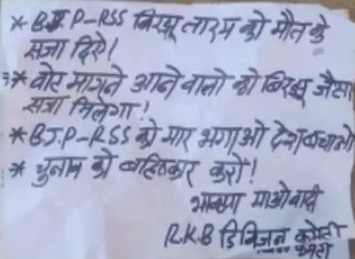 * BJP-RSS बिरझू तारम को मौत के
सजा दिऐ!
* वोट मागने आने वालो को बिरझू जैसा
सजा मिलेगा!
* BJP-RSS को मार भगाओ देश बचाओ
* चुनाव को बहिष्कार करो!
भाकपा माओवादी
R.K.B डिविजन कमेटी